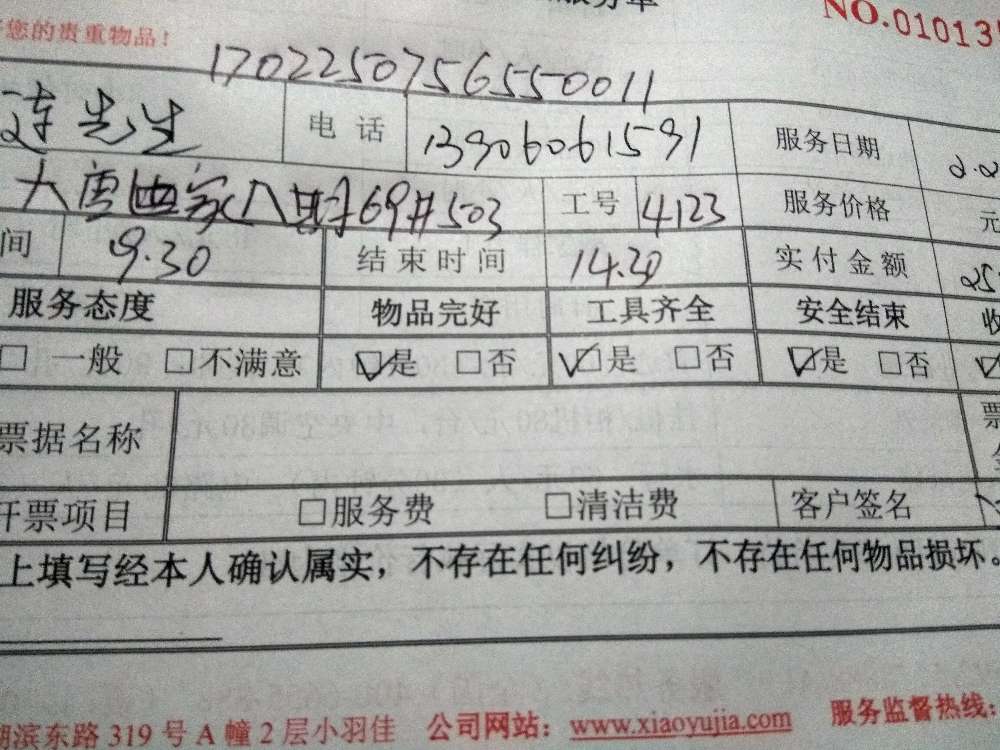 服务单
NO.01013
您的贵重物品！
17022507565550011
连先生 电话 13906061591 服务日期
大唐世家八期69#503 工号 4123 服务价格 元
间 9.30 结束时间 14.30 实付金额 25
服务态度 物品完好 工具齐全 安全结束 收
□ 一般 □不满意 ☑是 □否 ☑是 □否 ☑是 □否
票据名称 票
开票项目 □服务费 □清洁费 客户签名
上填写经本人确认属实，不存在任何纠纷，不存在任何物品损坏。
湖滨东路 319 号 A 幢 2 层小羽佳 公司网站：www.xiaoyujia.com 服务监督热线：